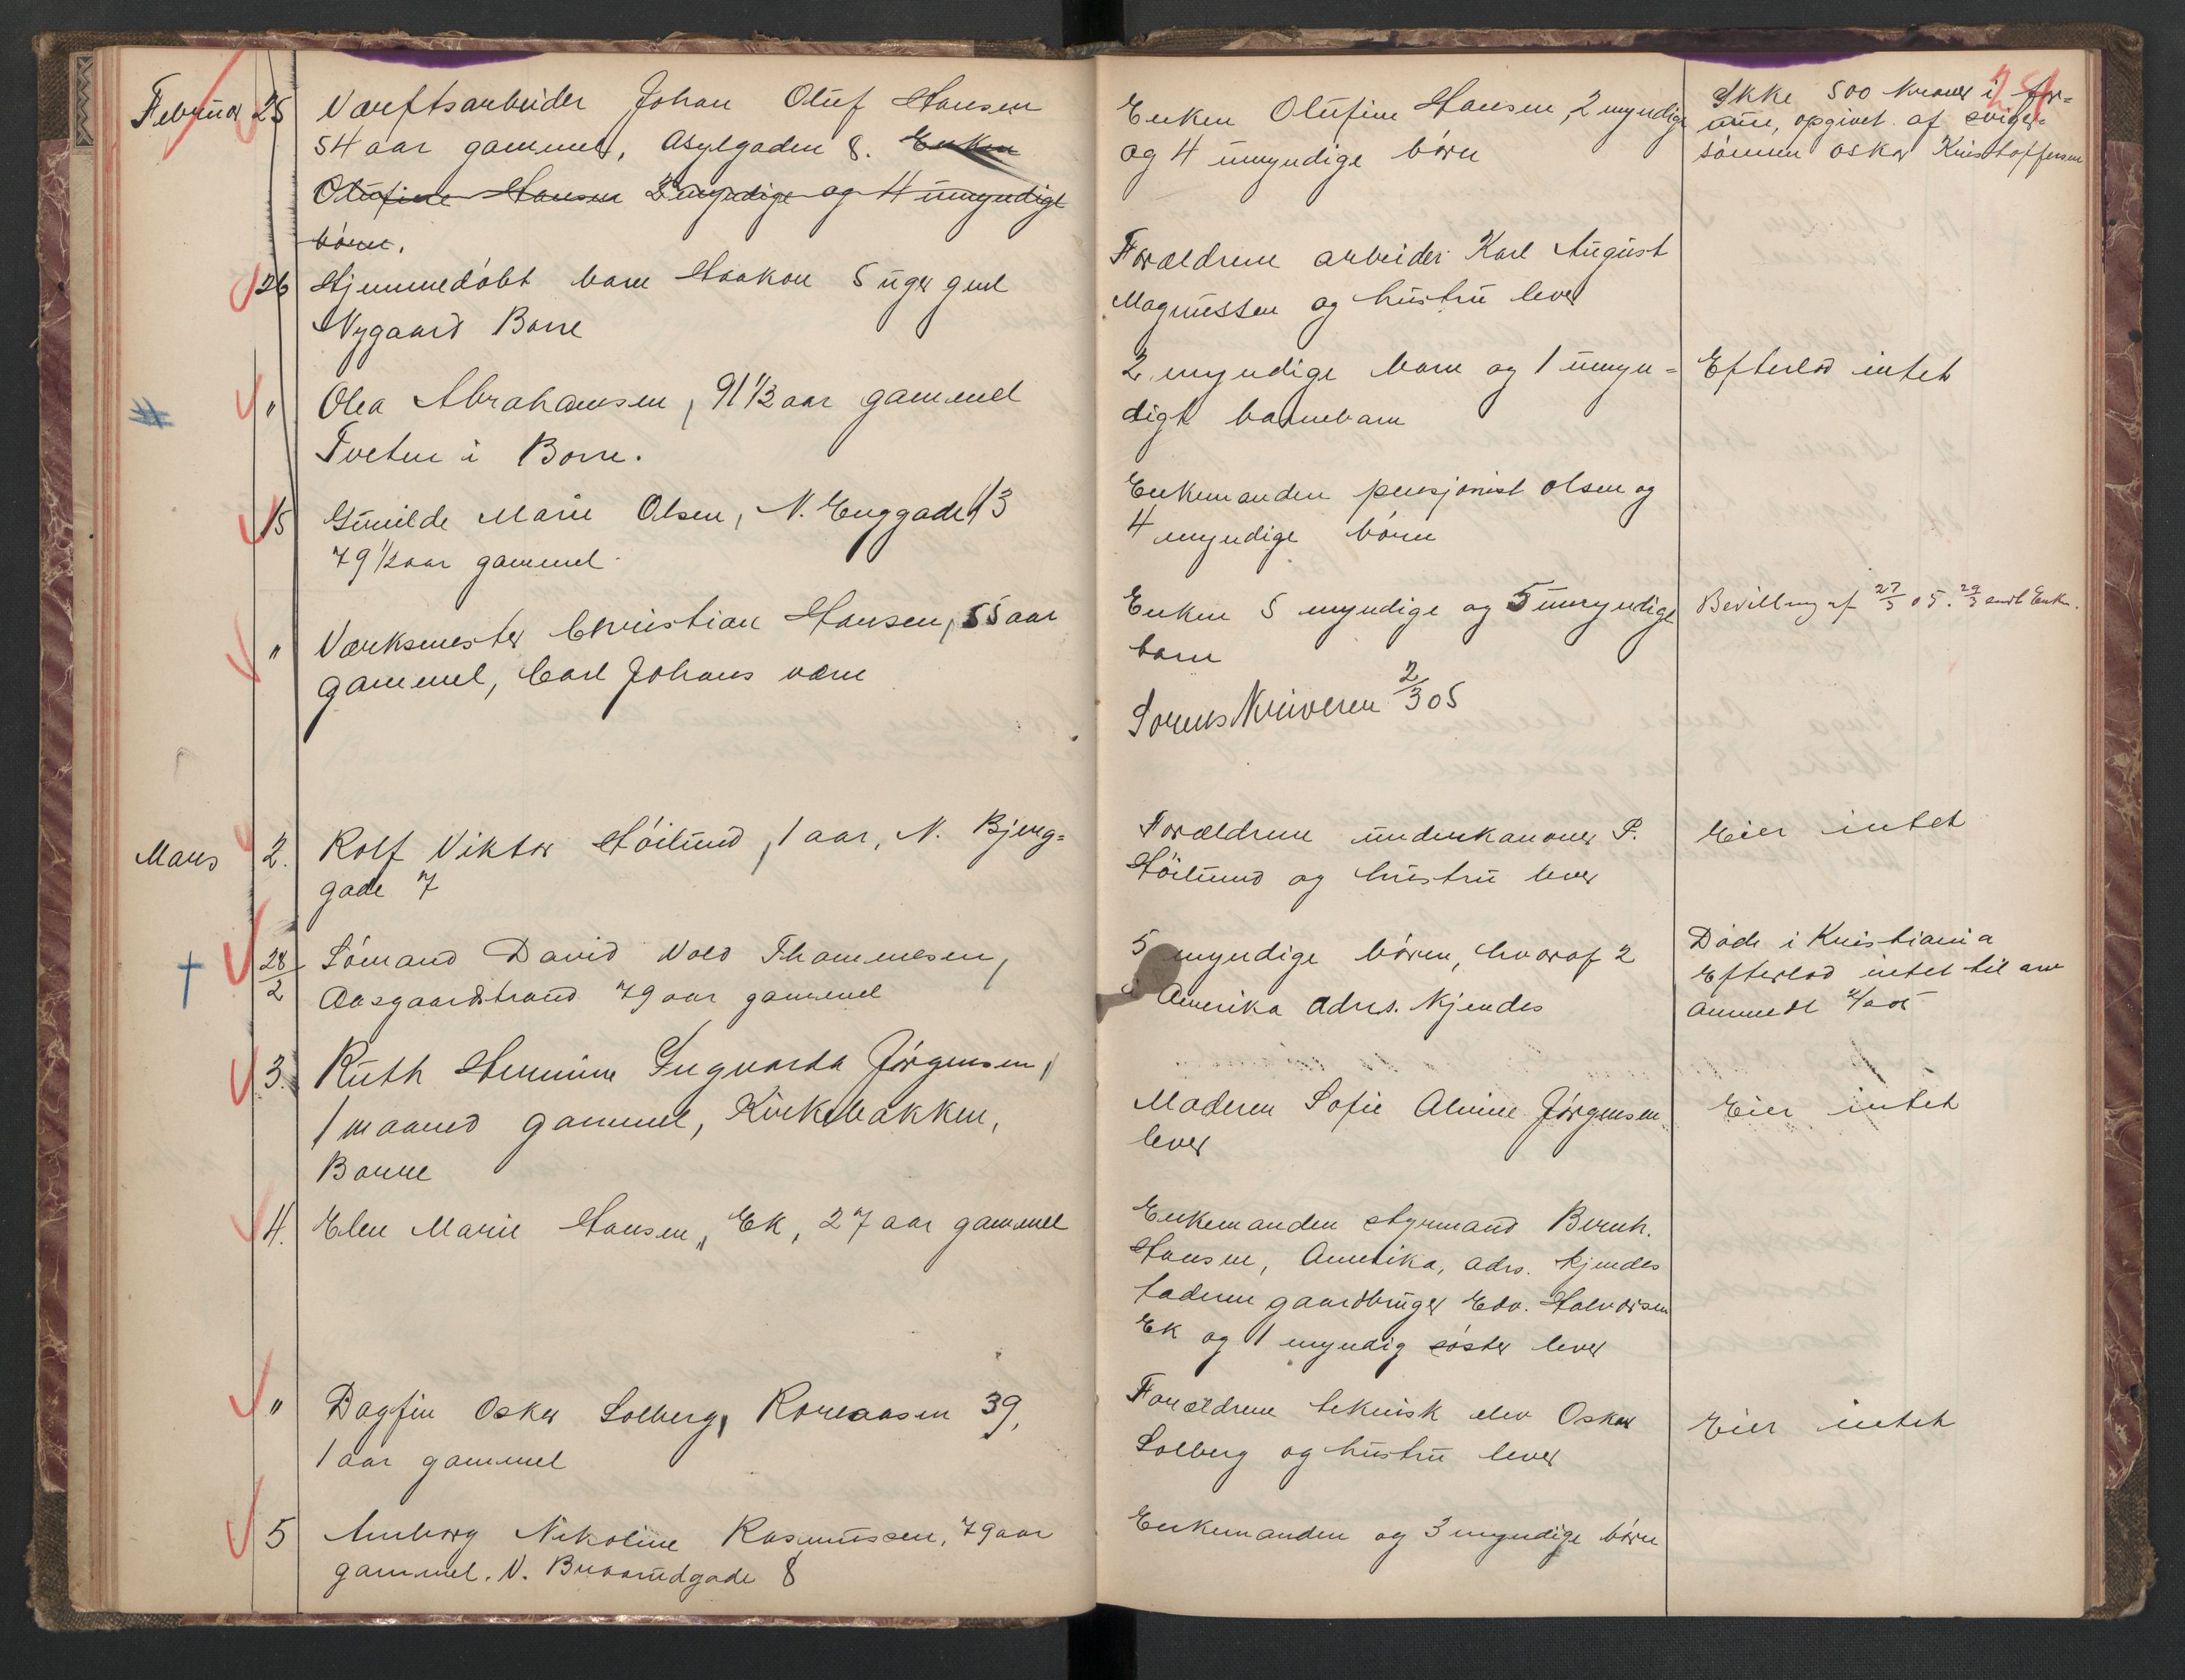 Februar 25 Værftsarbeider Johan Oluf Hansen
54 aar gammel, Asylgaden 8. Enken
Olufine Hansen 2 myndige og 4 umyndige
børn.
26 Hjemmedøbt barn Haakon 5 uger gml
Nygaard Borre
" Olea Abrahamsen, 91 1/2 aar gammel
Tveten i Borre.
15 Gunilde Marie Olsen, N. Enggade 13
79 1/2 aar gammel
" Værksmester Christian Hansen, 55 aar
gammel, Carl Johans værn
Mars 2. Rolf Viktor Höilund, 1 aar, N. Bjerg=
gade 7
28/2 Sömand David Vold Thammesen,
Aasgaardstrand 79 aar gammel
3. Ruth Hermine Ingvarda Jörgensen,
1 maaned gammel, Kirkebakken,
Borre
4. Elen Marie Hansen, Ek, 27 aar gammel
" Dagfin Oskar Solberg, Roreaasen 39,
1 aar gammel
5 Amborg Nikoline Rasmussen, 79 aar
gammel. N. Braarudgade 8
Enken Olufine Hansen, 2 myndige
og 4 umyndige börn
Forældrene arbeider Karl August
Magnussen og hustru lever
2 myndige barn og 1 umyn=
digt barnebarn
Enkemanden pensjonist Olsen og
4 myndige börn
Enken 5 myndige og 5 umyndige
barn
Sorenskriveren 2/3 05
Forældrene underkanoner P.
Höilund og hustru lever
5 myndige börn, hvoraf 2
i Amerika adrs. kjendes
Moderen Sofie Alvine Jörgensen
lever
Enkemanden styrmand Bernh.
Hansen, Amerika, adrs. kjendes
faderen gaardbruger Edv. Halvorsen
Ek og 1 myndig söster lever
Forældrene teknisk elev Oskar
Solberg og hustru lever
Enkemanden og 3 myndige börn
Ikke 500 kroner i for=
mue, opgivet af sviger=
sönnen Oskar Kristoffersen
Efterlod intet
Bevilling af 27/3 05. 29/3 sendt Enken.
Eier intet
Döde i Kristiania
Efterlod intet til
Eier intet
Eier intet